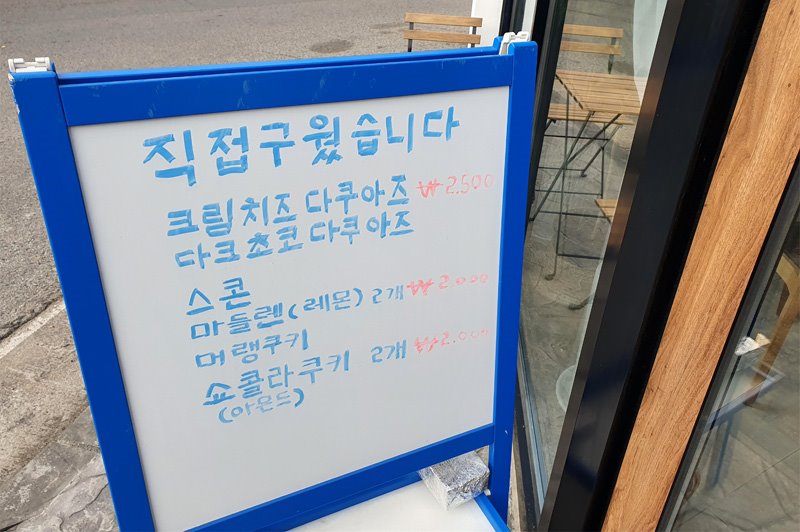 직접구웠습니다
크림치즈 다쿠아즈 ₩2.500
다크초코 다쿠아즈
스콘
마들렌(레몬) 2개 ₩2.000
머랭쿠키
쇼콜라쿠키 2개 ₩2.000
(아몬드)